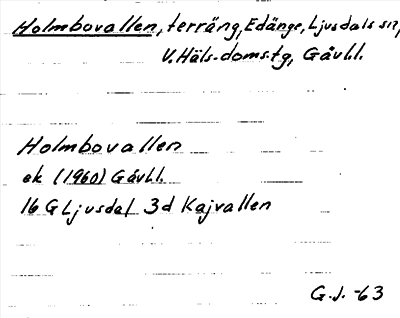 Holmbovallen, terräng, Edänge, Ljusdals sn,
V. Häls. doms.tg, Gävl.l.
Holmbovallen
ek (1960) Gävl.l.
16 G Ljusdal 3d Kajvallen
G.J. -63